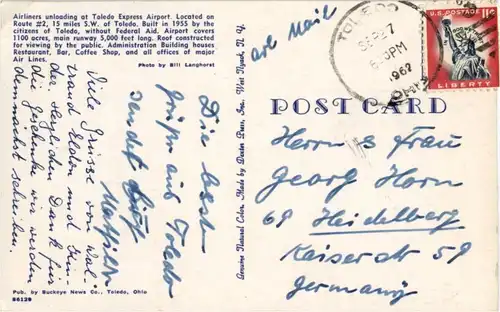 Airliners unloading at Toledo Express Airport. Located on
Route #2, 15 miles S.W. of Toledo. Built in 1955 by the
citizens of Toledo, without Federal Aid. Airport covers
1100 acres, main runway 5,000 feet long. Roof constructed
for viewing by the public. Administration Building houses
Restaurant, Bar, Coffee Shop, and all offices of major
Air Lines.
Photo by Bill Langhorst
Die besten
Grüße aus Toledo
sendet Euch
Mathilde
Viele Grüsse von Wal-
traud Elden und Kin-
der. Herzlichen Dank für
die Geschenke wir werden
demnächst schreiben.
Pub. by Buckeye News Co., Toledo, Ohio
86129
Genuine Natural Color, Made by Dexter Press, Inc. West Nyack, N. Y.
Air Mail
TOLEDO
SEP 27
PM
1962
OHIO
U.S. POSTAGE 11¢
LIBERTY
POST CARD
Herrn & Frau
Georg Horn
69 Heidelberg
Kaiserstr 59
Germany